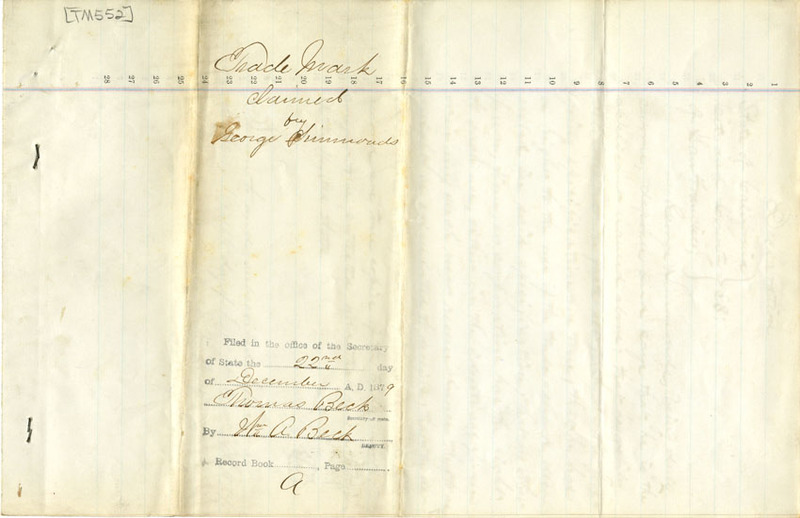 [TM552]
28 27 26 25 24 23 22 21 20 19 18 17 16 15 14 13 12 11 10 9 8 7 6 5 4 3 2 1
Trade Mark
claimed
by
George Simmonds
Filed in the office of the Secretary
of State the 22nd day
of December A.D. 1879
Thomas Beck
Secretary of State.
By Wm A. Beck
DEPUTY.
Record Book , Page .
A